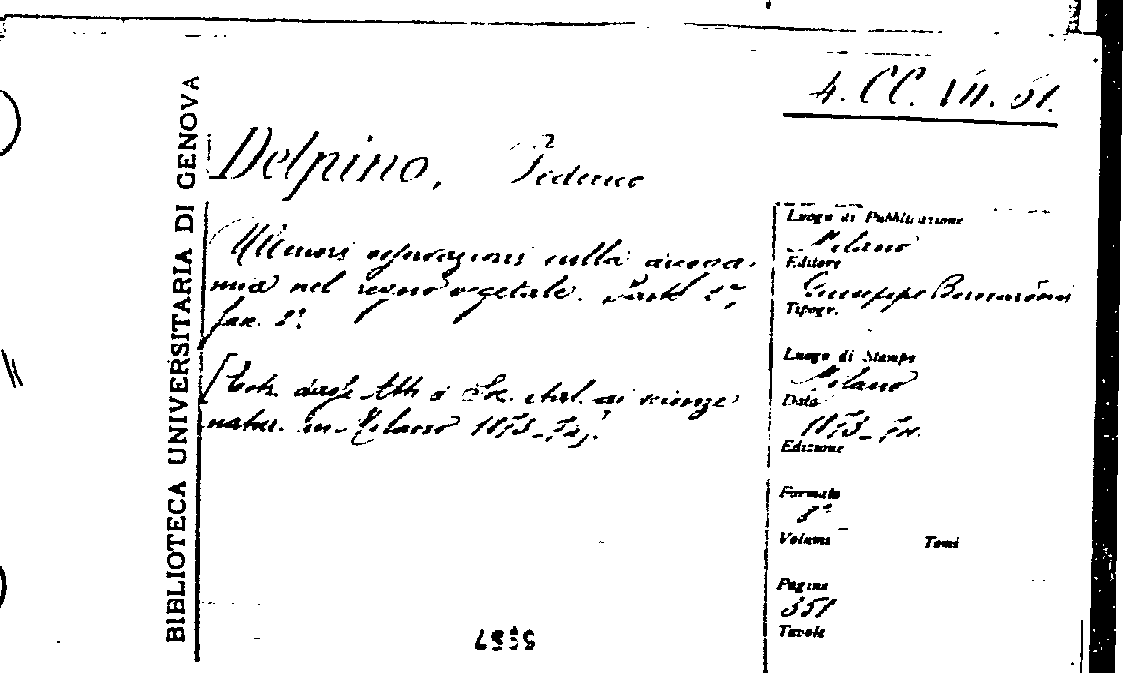 4. CC. VII. 51.
BIBLIOTECA UNIVERSITARIA DI GENOVA
Delpino, Federico
Ulteriori osservazioni sulla dicoga-
mia nel regno vegetale. Parte 2ª,
fasc. 2º.
[Estr. dagli Atti d. Soc. ital. di scienze
natur. in Milano 1873-74].
Luogo di Pubblicazione
Milano
Editore
Giuseppe Bernardoni
Tipogr.
Luogo di Stampa
Milano
Data
1873-74.
Edizione
Formato
8º
Volumi Tomi
Pagine
351
Tavole